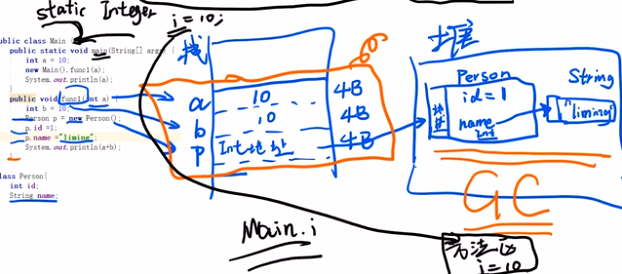 static Integer i = 10;
public class Main {
public static void main(String[] args) {
int a = 10;
new Main().func1(a);
System.out.println(a);
}
public void func1(int a) {
int b = 10;
Person p = new Person();
p.id =1;
p.name ="liming";
System.out.println(a+b);
}
class Person{
int id;
String name;
栈
a 10 4B
b 10 4B
p Int地址 4B
堆
Person
id = 1
name
int
String
"liming"
GC
Main.i
方法区
i = 10